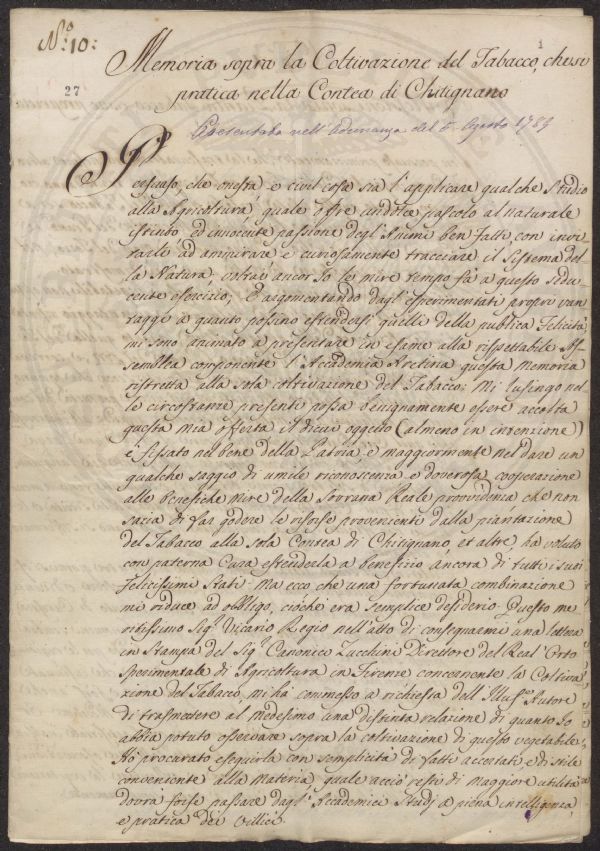 N.º 10:
1
27
Memoria sopra la Coltivazione del Tabacco, che si
pratica nella Contea di Chitignano
Presentata nell'Adunanza del 5. Agosto 1789
Persuaso, che onesta e civil cosa sia l'applicare qualche Studio
alla Agricoltura, quale offre condota pascolo al naturale
istinto ed innocente passione degl'Animi ben fatti, con invi=
tarli ad ammirare e curiosamente tracciare il Sistema del=
la Natura; entrai ancor Io le mire tempo fà a questo sedu=
cente esercizio; E argomentando dagl'esperimentati proprj van=
taggi a quanto possino estendersi quelli della publica Felicità
mi sono animato à presentare in esame alla rispettabile As=
semblea componente l'Accademia Aretina questa memoria
ristretta alla sola coltivazione del Tabacco: Mi lusingo nel=
le circostanze presenti possa benignamente essere accolta
questa mia offerta il di cui oggetto (almeno in intenzione)
è fissato nel bene della Patria, e maggiormente nel dare un
qualche saggio di umile riconoscenza e doverosa cooperazione
alle benefiche mire della Sovrana Reale provvidenza che non
sazia di far godere le risorse provenienti dalla piantazione
del Tabacco alla sola Contea di Chitignano, et altre, ha voluto
con paterna Cura estenderla a benefizio ancora di tutti i suoi
Felicissimi Stati. Ma ecco che una fortunata combinazione
mi riduce ad obbligo, ciòche era semplice desiderio. Questo me=
ritissimo Sigº Vicario Regio nell'atto di consegnarmi una lettera
in Stampa del Sigº Canonico Zucchini Direttore del Real'Orto
Sperimentale di Agricoltura in Firenze concernente la Coltiva=
zione del Tabacco, mi hà commesso a richiesta dell'Illuſº Autore
di trasmettere al medesimo una distinta relazione di quanto Io
abbia potuto osservare sopra la coltivazione di questo vegetabile.
Hò procurato eseguirla con semplicità di fatti accertati e di stile
conveniente alla materia, quale acciò resti di maggiore utilità
dovrà forse passare dagl'Accademici Studj a piena intelligenza
e pratica dei Villici.